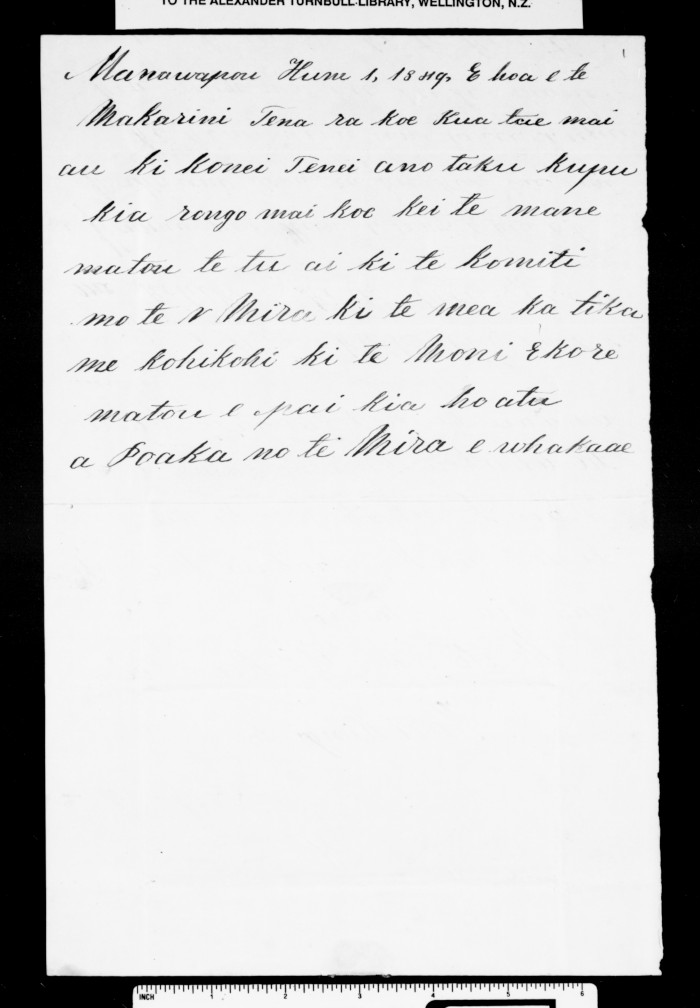 TO THE ALEXANDER TURNBULL LIBRARY, WELLINGTON, N.Z.
1
Manawapou Hune 1, 1849, E hoa e te
Makarini Tena ra koe Kua tae mai
au ki konei Tenei ano taku kupu
kia rongo mai koe kei te mane
matou te tu ai ki te komiti
mo te Mira ki te mea ka tika
me kohikohi ki te Moni Ekore
matou e pai kia hoatu
a Poaka no te Mira e whakaae
INCH 1 2 3 4 5 6